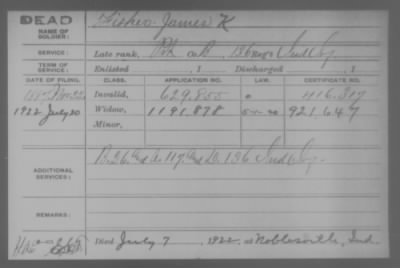 DEAD
NAME OF SOLDIER: Fisher James K
SERVICE: Late rank, Pvt Co D, 136 Reg't Ind Inf
TERM OF SERVICE: Enlisted , 1 Discharged , 1
DATE OF FILING. CLASS. APPLICATION NO. LAW. CERTIFICATE NO.
1887 Nov 22 Invalid, 629.855 416.317
1922 July 20 Widow, 1191.878 921,647
Minor,
ADDITIONAL SERVICES: B. 26. A. 117. D. 136 Ind Inf.
REMARKS:
Died July 7, 1922, at Noblesville, Ind.